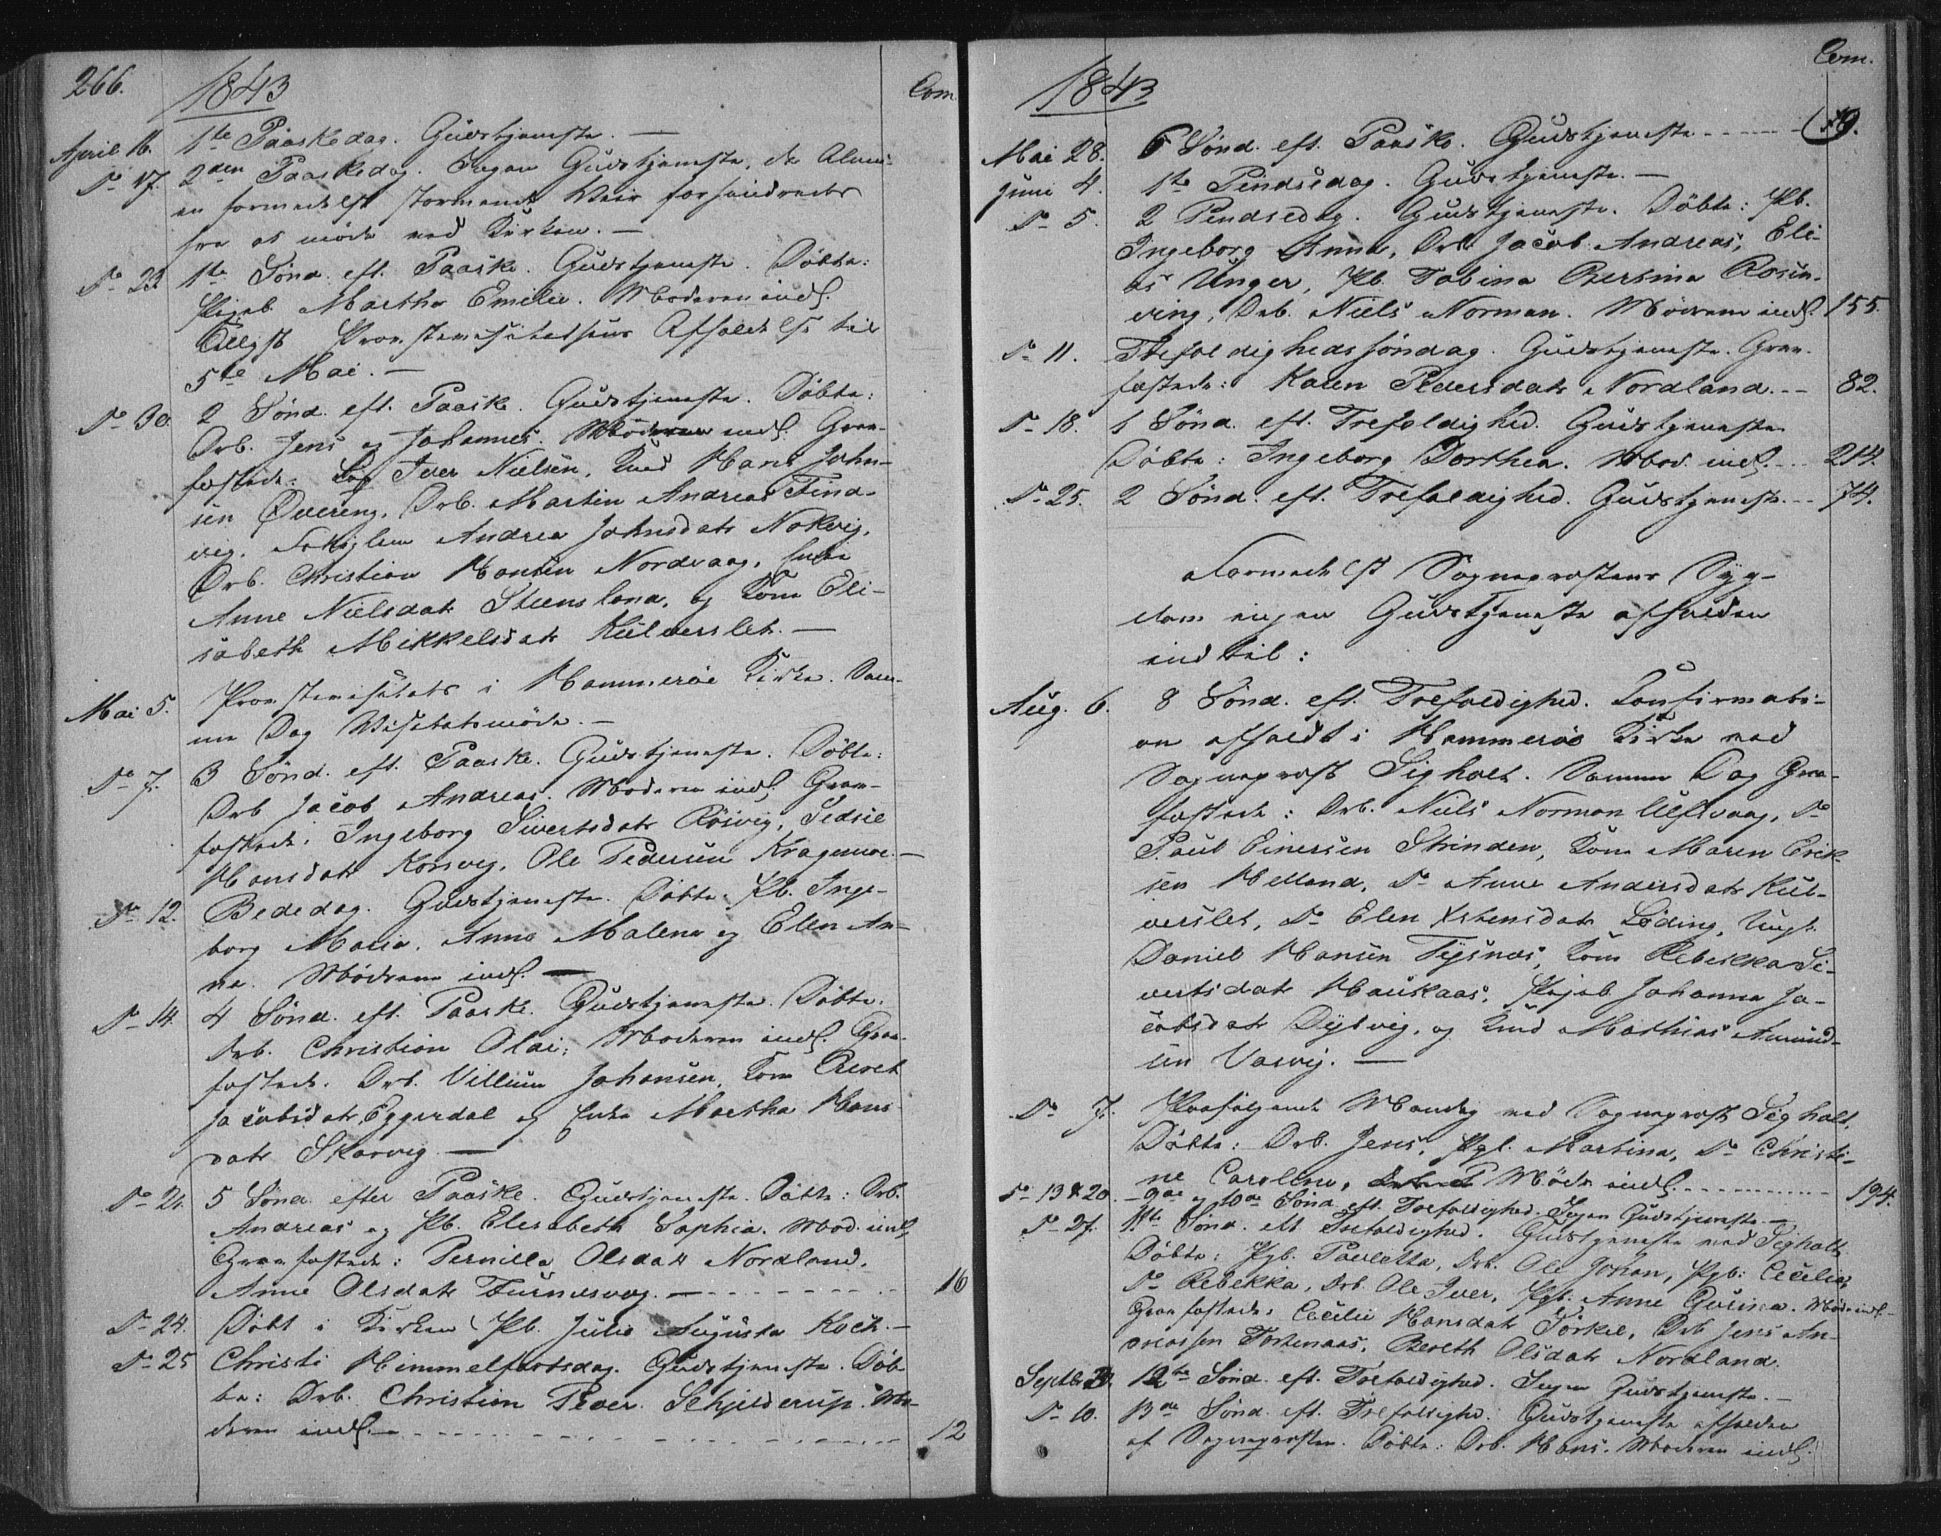 266.
1843
Com.
April 16. 1te Paaskedag. Gudstjeneste. —
Do 17. 2den Paaskedag. Ingen Gudstjeneste, da Almu-
en formedelst stormende Veir forhindredes
fra at møde ved Kirken. —
Do 23. 1te Sønd. eft. Paaske. Gudstjeneste. Døbte:
Pigeb. Martha Emilie. Moderen indl.
Tillyst Provstevisitatsens Afholdelse til
5te Mai. —
Do 30. 2 Sønd. eft. Paaske. Gudstjeneste. Døbte:
Drb. Jens og Johannes. Mødrene indl. Grav-
fæstede: Iver Nielsen, Hans John-
sen Øvereng, Drb. Martin Andreas Find-
vig, Andrea Johnsdatr Nakvig,
Drb. Christian Hansen Nordvaag, Enke
Anne Nielsdatr Steensland, og Kone Eli-
sabeth Mikkelsdatr Kulverslet. —
Mai 5. Provstevisitats i Hammerøe Kirke. Sam-
me Dag Visitatsmøde. —
Do 7. 3 Sønd. eft. Paaske. Gudstjeneste. Døbte:
Drb. Jacob Andreas. Moderen indl. Grav-
fæstede: Ingeborg Sivertsdatr Røsvig, Sedsie
Hansdatr Korsvig, Ole Pedersen Kragemoe. —
Do 12. Bededag. Gudstjeneste. Døbte: Pb. Inge-
borg Maria, Anne Malena og Elen An-
na. Mødrene indl. —
Do 14. 4 Sønd. eft. Paaske. Gudstjeneste. Døbte:
Drb. Christian Olai; Moderen indl. Grav-
fæstede: Drb. Villium Johansen, Kone Beret
Jacobsdatr Eggerdal og Enke Martha Hans-
datr Skarvig. —
Do 21. 5 Sønd. efter Paaske. Gudstjeneste. Døbte: Drb.
Andreas og Pb. Elisabeth Sophia. Mød. indl.
Gravfæstede: Pernilla Olsdatr Nordland,
Anne Olsdatr Furnesvog. — 16
Do 24. Døbt i Kirken Pb. Julie Augusta Koch. —
Do 25 Christi Himmelfartsdag. Gudstjeneste. Døb-
te: Drb. Christian Peder Schjelderup. Mo-
deren indl. — 12
1843
Com.
Mai 28. 6 Sønd. eft. Paaske. Gudstjeneste 19.
Juni 4. 1te Pindsedag. Gudstjeneste. —
Do 5. 2 Pindsedag. Gudstjeneste. Døbte: Pb.
Ingeborg Anna, Drb. Jacob Andreas, Eli-
as Unger, Pb. Tabina Bertina Rosen-
ving, Drb. Niels Norman. Mødrene indl. 155.
Do 11. Trefoldighedssøndag. Gudstjeneste. Grav-
fæstede: Karen Pedersdatr Nordland. — 82.
Do 18. 1 Sønd. eft. Trefoldighed. Gudstjeneste.
Døbte: Ingeborg Dorthea. Mod. indl. 214.
Do 25. 2 Sønd. eft. Trefoldighed. Gudstjeneste 74.
Formedelst Sogneprestens Syg-
dom ingen Gudstjeneste afholden
indtil:
Aug. 6. 8 Sønd. eft. Trefoldighed. Konfirmati-
on afholdt i Hammerøe Kirke ved
Sogneprest Sigholt. Samme Dag Grav-
fæstede: Drb. Niels Norman Ulfsvaag, Do
Paul Einersen Strinden, Kone Maren Erik-
sen Helland, Do Anne Andersdatr Kul-
verslet, Do Elen Løding, Ungk.
Daniel Hansen Tysnes, Kone Rebekka Si-
vertsdatr Hauskaas, Pigeb. Johanna Ja-
cobsdatr Dybvig, og Mathias Amund-
sen Vasvig. —
Do 7. Paafølgende Mandag ved Sogneprest Sigholt.
Døbte: Drb. Jens, Pgb. Martina, Do Christi-
ne Caroline, Møde indl. 194.
Do 13 & 20. 9de og 10de Sønd. eft. Trefoldighed. Ingen Gudstjeneste. —
Do 27. 11te Sønd. eft. Trefoldighed. Gudstjeneste ved Sigholt.
Døbte: Pgb. Pauletta, Drb. Ole Johan, Pgb: Cecilie,
Do Rebekka, Drb. Ole Iver, Pgb. Anne Gurina. Møde indl.
Gravfæstede: Cecilie Hansdatr Torkel, Drb. Jens An-
dreassen Forkenaas, Bereth Olsdatr Nordland.
Septbr 3. 12te Sønd. eft. Trefoldighed. Ingen Gudstjeneste. —
Do 10. 13de Sønd. eft. Trefoldighed. Gudstjeneste afholden
af Sognepresten. Døbte: Drb. Hans. Moderen indl.